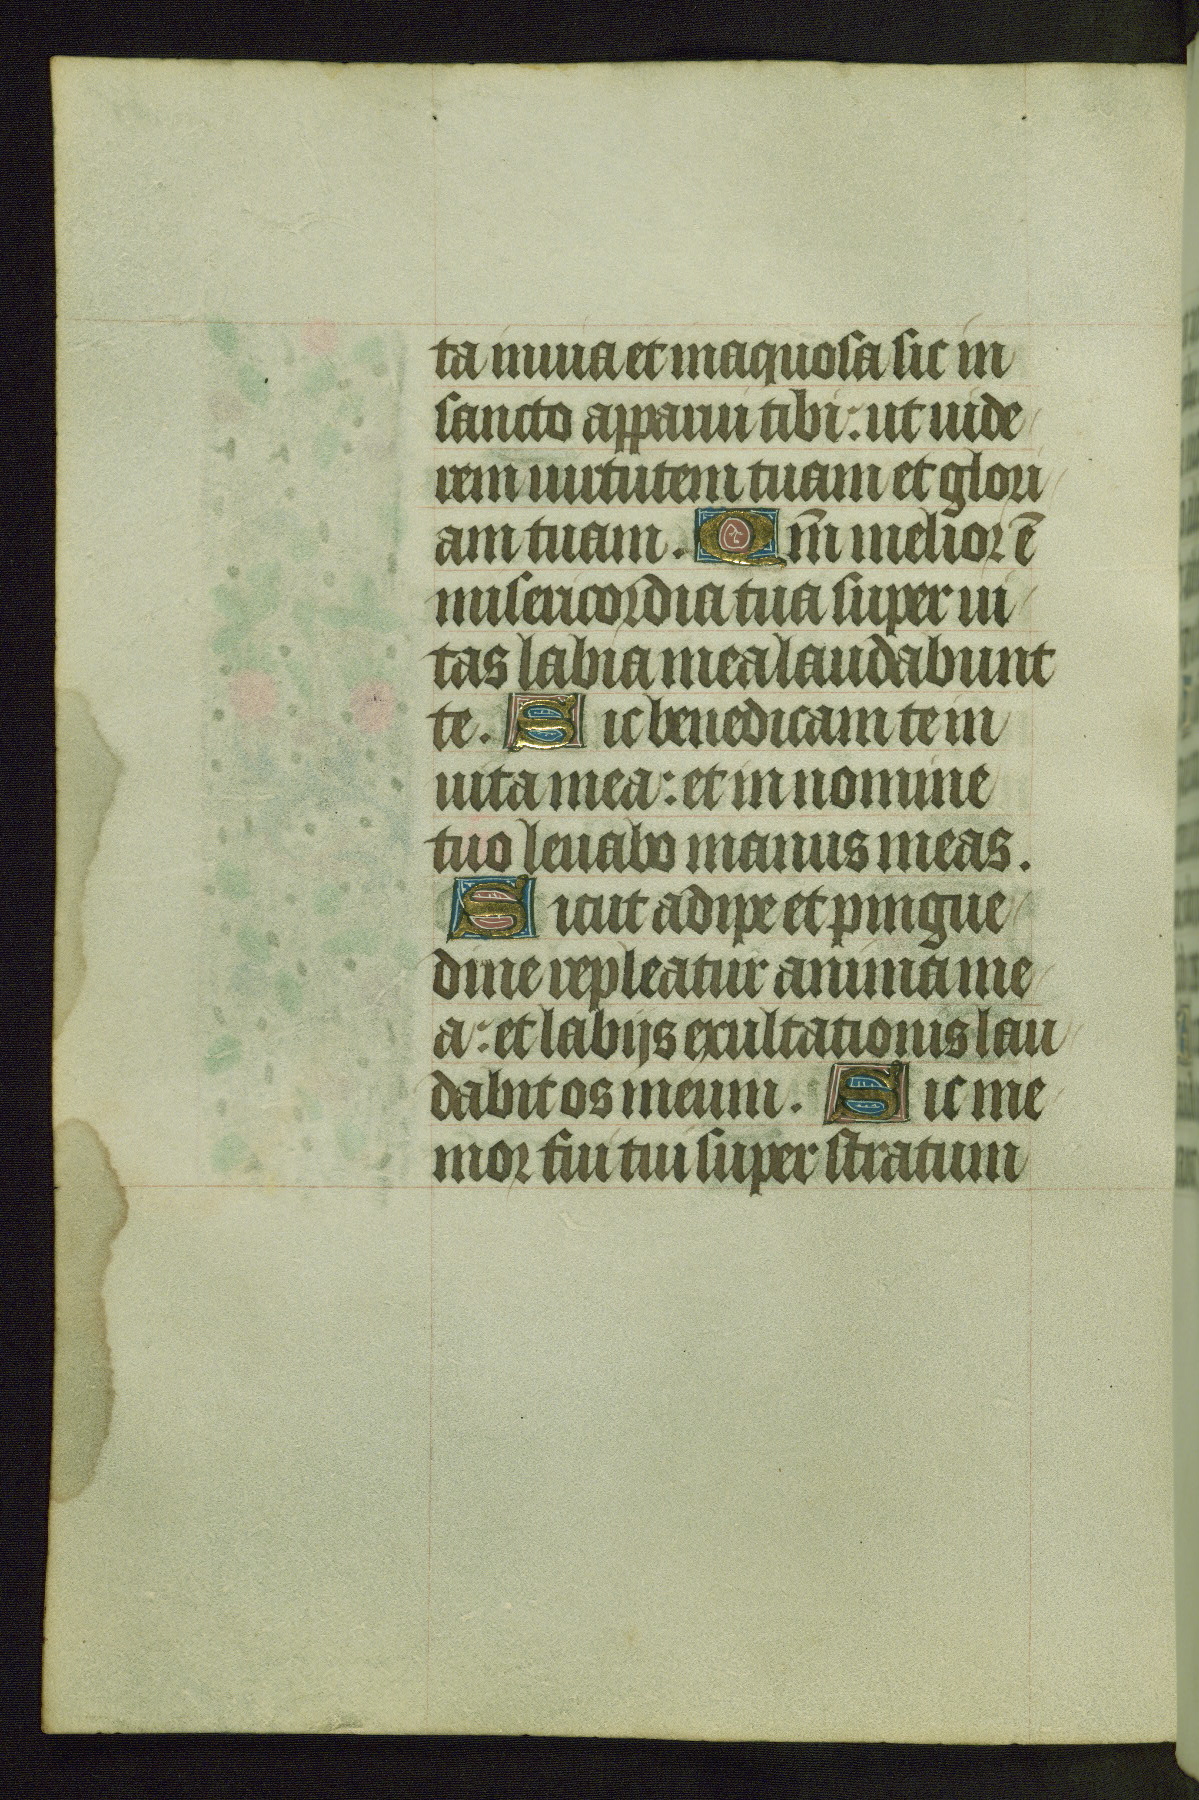 ta inuia et inaquosa sic in
sancto apparui tibi: ut uide
rem uirtutem tuam et glori
am tuam. Qm̄ melior ē
misericordia tua super ui
tas labia mea laudabunt
te. Sic benedicam te in
uita mea: et in nomine
tuo leuabo manus meas.
Sicut adipe et pingue
dine repleatur anima me
a: et labijs exultationis lau
dabit os meum. Sic me
mor fui tui super stratum